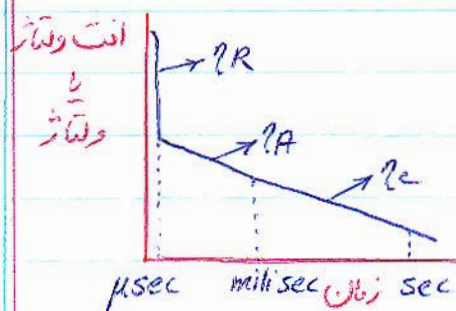 افت ولتاژ
یا
ولتاژ
ηR
ηA
ηc
μsec milisec زمان sec